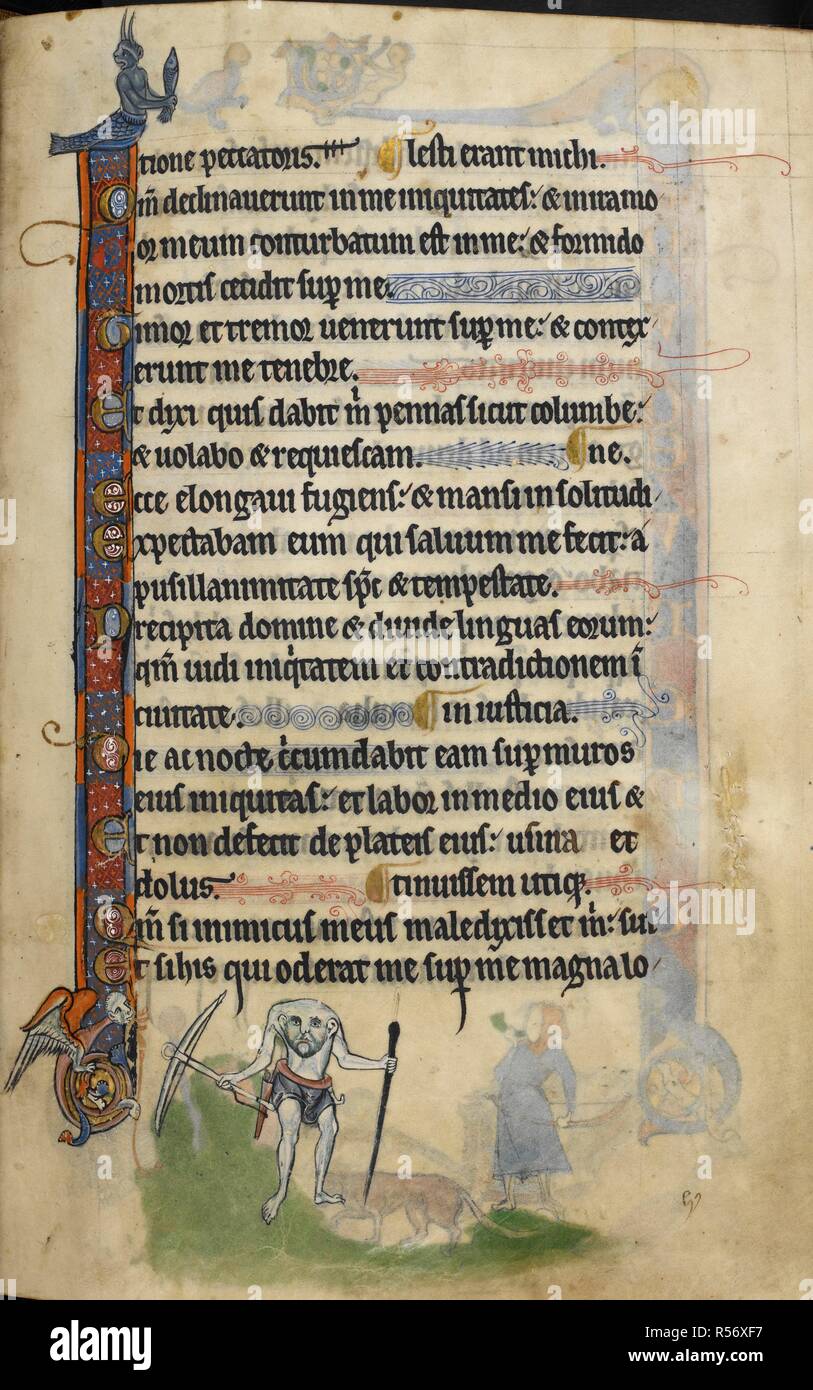 tione peccatoris. lesti erant michi.
Qm̄ declinauerunt in me iniquitates: & in ira mo
or meum conturbatum est in me: & formido
mortis cecidit sup me.
Timor et tremor uenerunt sup me: & contex
erunt me tenebre.
Et dyxi quis dabit m̄ pennas sicut columbe:
& uolabo & requiescam. ne.
Ecce elongaui fugiens: & mansi in solitudi
Expectabam eum qui saluum me fecit: a
pusillanimitate sp̄c & tempestate.
Precipita domine & diuide linguas eorum:
qm̄ uidi iniqitatem et contradictionem ī
ciuitate. in iusticia.
Die ac nocte circumdabit eam sup muros
eius iniquitas: et labor in medio eius &
Et non defecit de plateis eius: usura et
dolus. tinuissem utiq.
Qm̄ si inimicus meus maledyxisset m̄: sus
Et si his qui oderat me sup me magna lo
alamy
Image ID: R56XF7
www.alamy.com